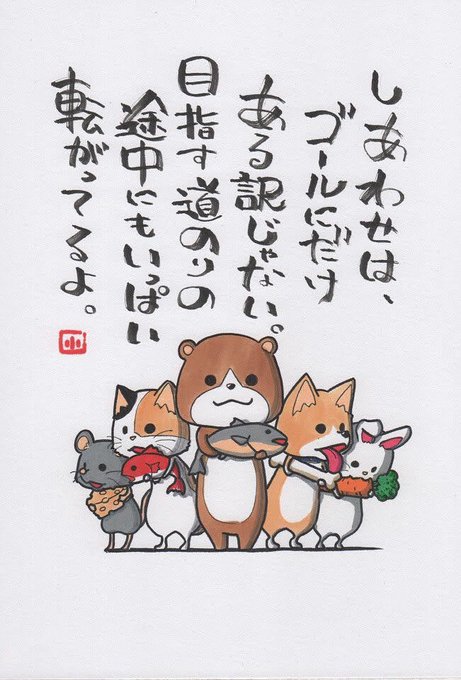 しあわせは、
ゴールにだけ
ある訳じゃない。
目指す道のりの
途中にもいっぱい
転がってるよ。